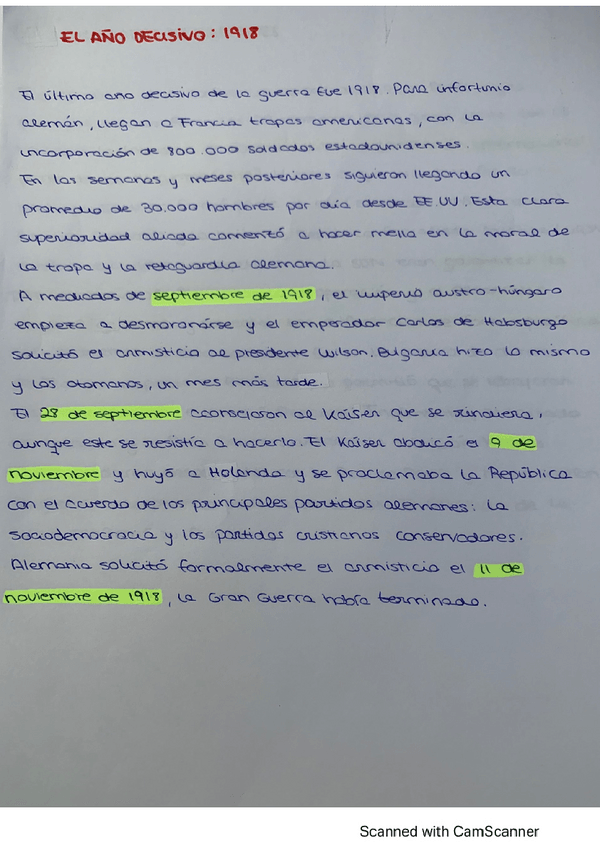 EL AÑO DECISIVO: 1918
El último ano decisivo de la guerra fue 1918. Para infortunio
alemán, llegan a Francia tropas americanas, con la
incorporación de 800.000 soldados estadounidenses.
En las semanas y meses posteriores siguieron llegando un
promedio de 30.000 hombres por día desde EE.UU. Esta clara
superioridad aliada comenzó a hacer mella en la moral de
la tropa y la retaguardia alemana.
A mediados de septiembre de 1918, el imperio austro-húngaro
empieza a desmoronarse y el emperador Carlos de Habsburgo
solicitó el armisticio al presidente Wilson. Bulgaria hizo lo mismo
y los otomanos, un mes más tarde.
El 28 de septiembre aconsejaron al Kaiser que se rindiera,
aunque este se resistía a hacerlo. El Kaiser abdicó el 9 de
noviembre y huyó a Holanda y se proclamaba la República
con el acuerdo de los principales partidos alemanes: la
sociodemocracia y los partidos cristianos conservadores.
Alemania solicitó formalmente el armisticio el 11 de
noviembre de 1918, la Gran Guerra había terminado.
Scanned with CamScanner